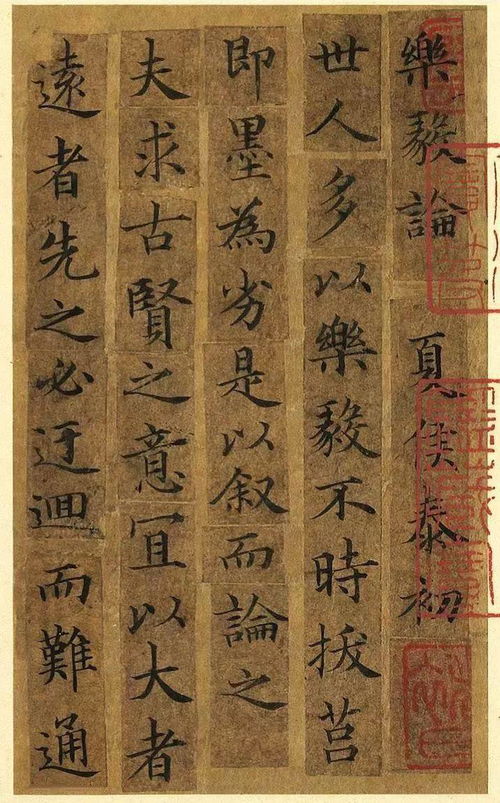 樂毅論 夏侯泰初
世人多以樂毅不時拔莒
即墨為劣是以叙而論之
夫求古賢之意宜以大者
遠者先之必迂迴而難通